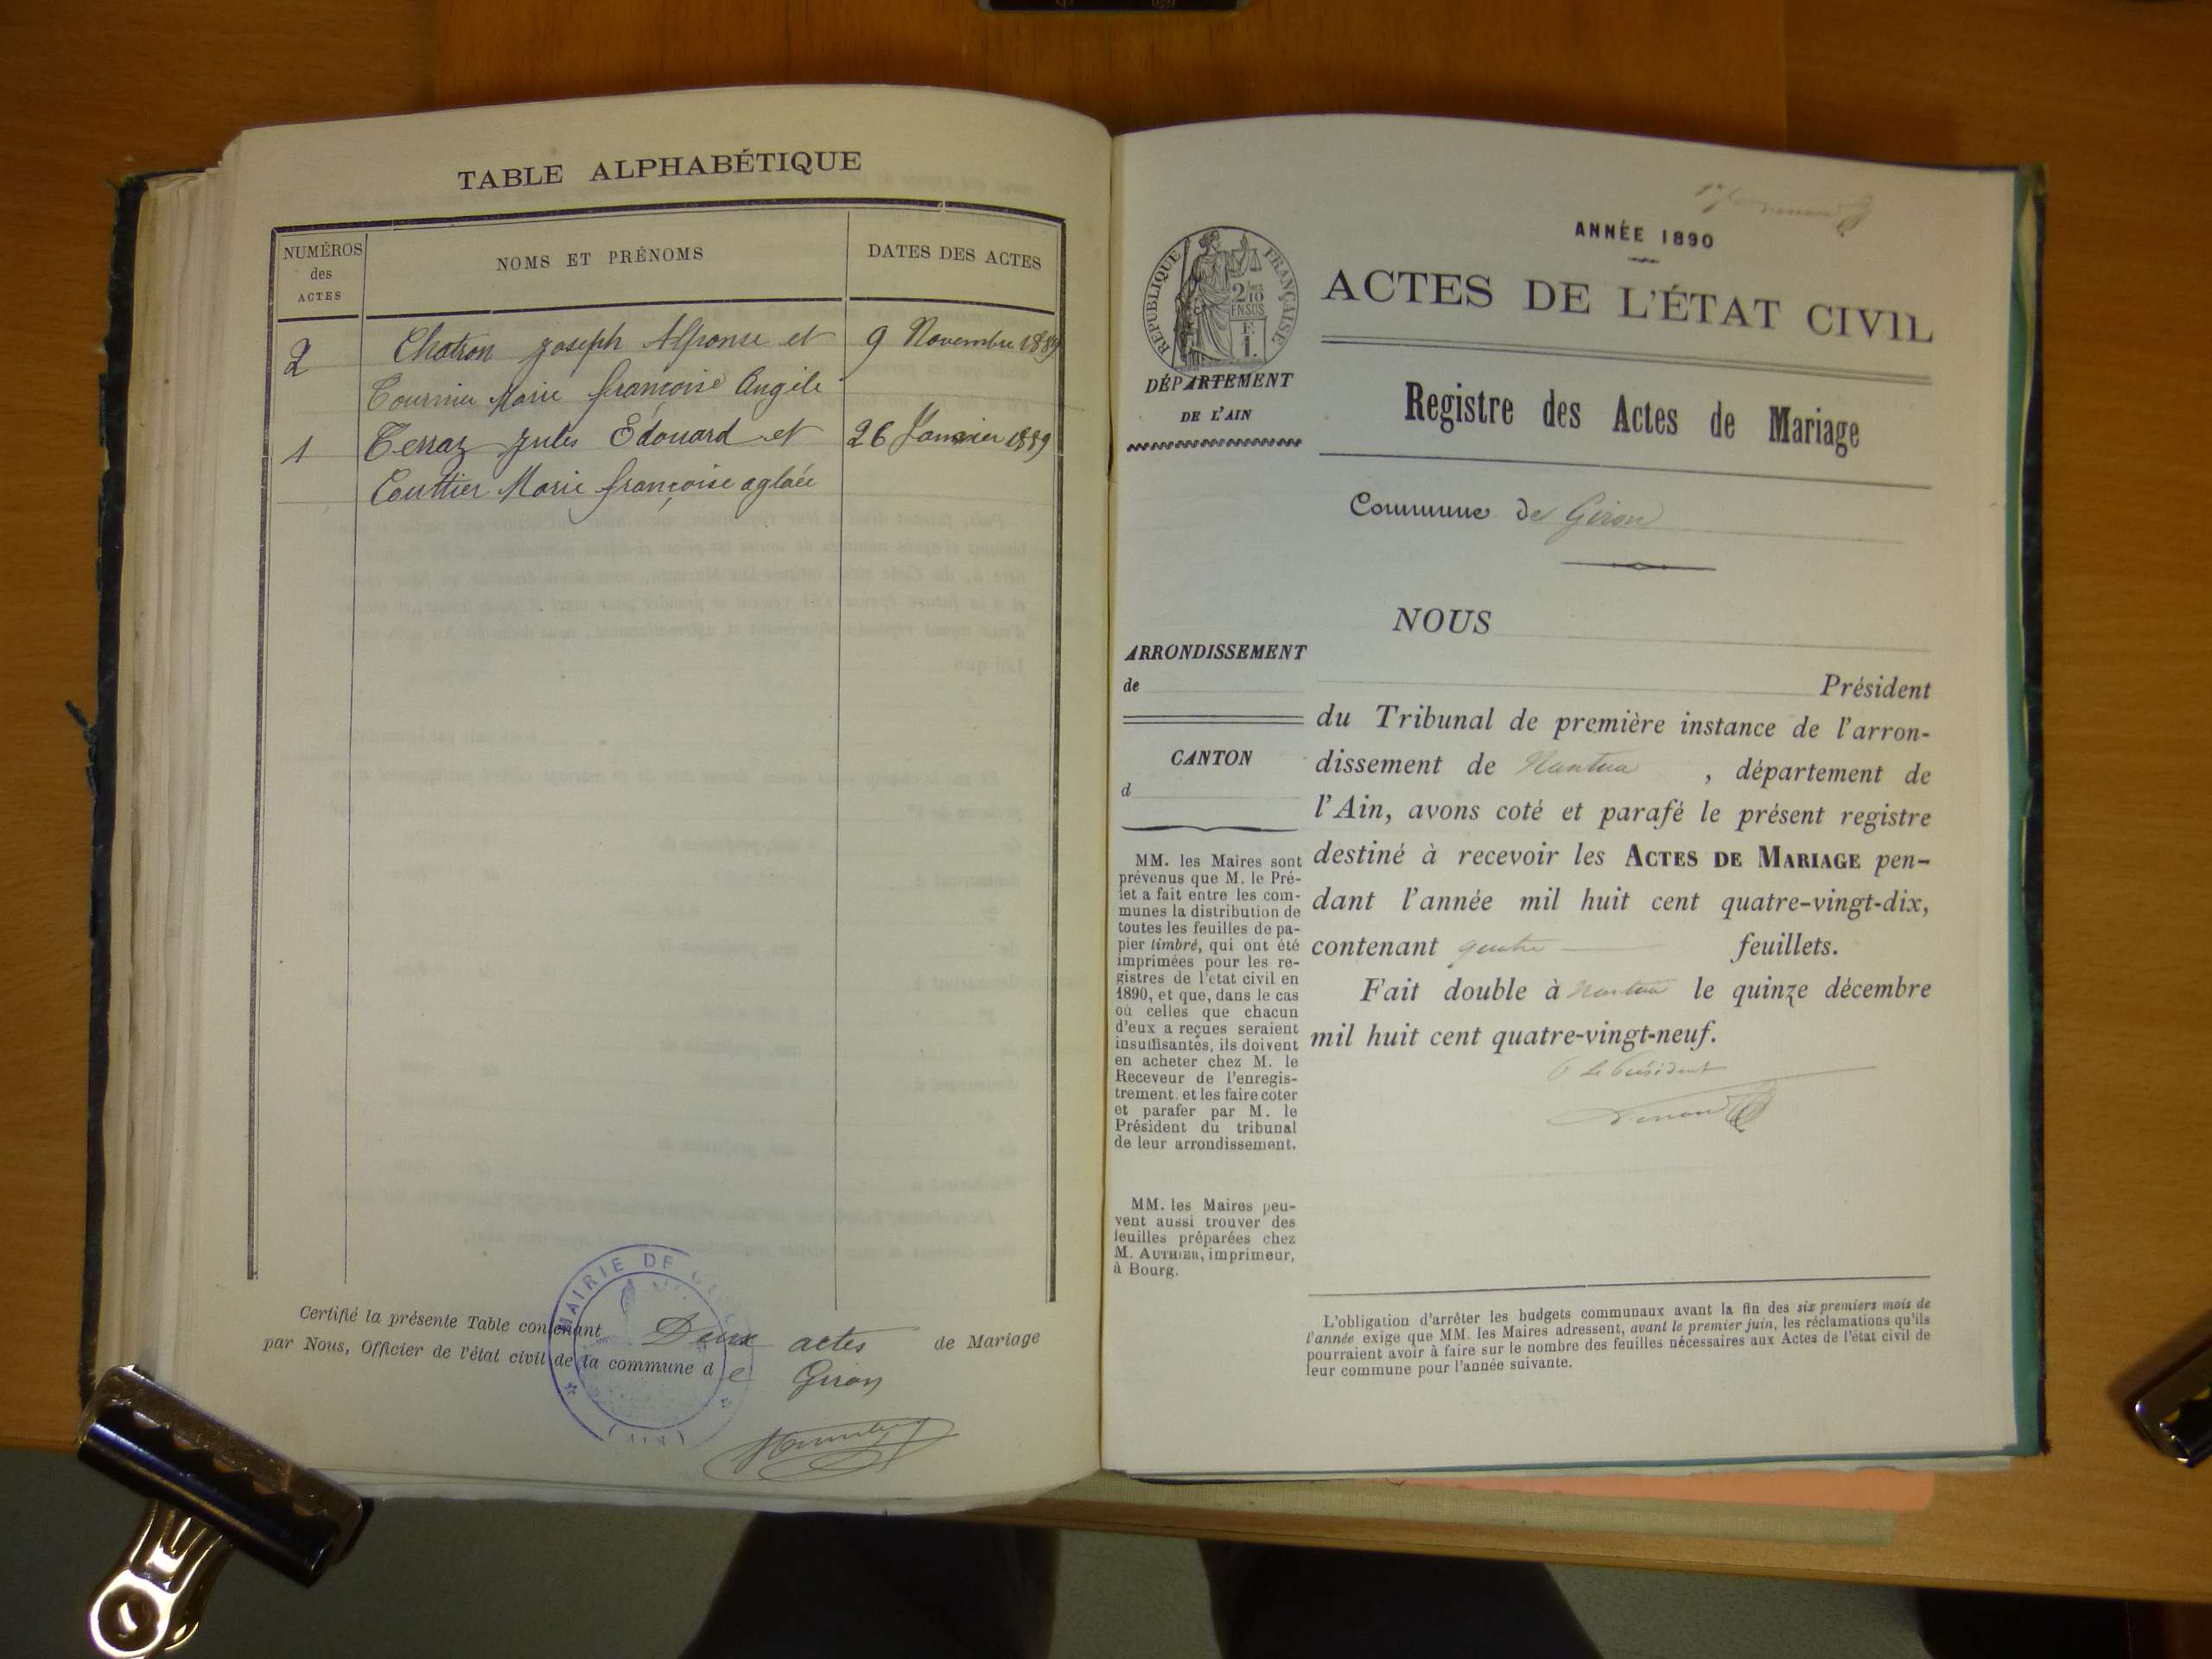 TABLE ALPHABÉTIQUE
NUMÉROS
des
ACTES
NOMS ET PRÉNOMS
DATES DES ACTES
2 Chatron Joseph Alfronse et 9 Novembre 1889
Tournier Marie françoise Angèle
1 Terraz Jules Édouard et 26 Janvier 1889
Couttier Marie françoise aglaée
Certifié la présente Table contenant Deux actes de Mariage
par Nous, Officier de l'état civil de la commune d e Giron
MAIRIE DE
(AIN)
ANNÉE 1890
ACTES DE L'ÉTAT CIVIL
RÉPUBLIQUE FRANÇAISE
DÉPARTEMENT
DE L'AIN
Registre des Actes de Mariage
Commune de Giron
NOUS
ARRONDISSEMENT
de
CANTON
d
Président
du Tribunal de première instance de l'arron-
dissement de Nantua , département de
l'Ain, avons coté et parafé le présent registre
destiné à recevoir les ACTES DE MARIAGE pen-
dant l'année mil huit cent quatre-vingt-dix,
contenant quatre feuillets.
Fait double à Nantua le quinze décembre
mil huit cent quatre-vingt-neuf.
Le Président
MM. les Maires sont
prévenus que M. le Pré-
fet a fait entre les com-
munes la distribution de
toutes les feuilles de pa-
pier timbré, qui ont été
imprimées pour les re-
gistres de l'état civil en
1890, et que, dans le cas
où celles que chacun
d'eux a reçues seraient
insuffisantes, ils doivent
en acheter chez M. le
Receveur de l'enregis-
trement. et les faire coter
et parafer par M. le
Président du tribunal
de leur arrondissement.
MM. les Maires peu-
vent aussi trouver des
feuilles préparées chez
M. AUTHIER, imprimeur,
à Bourg.
L'obligation d'arrêter les budgets communaux avant la fin des six premiers mois de
l'année exige que MM. les Maires adressent, avant le premier juin, les réclamations qu'ils
pourraient avoir à faire sur le nombre des feuilles nécessaires aux Actes de l'état civil de
leur commune pour l'année suivante.